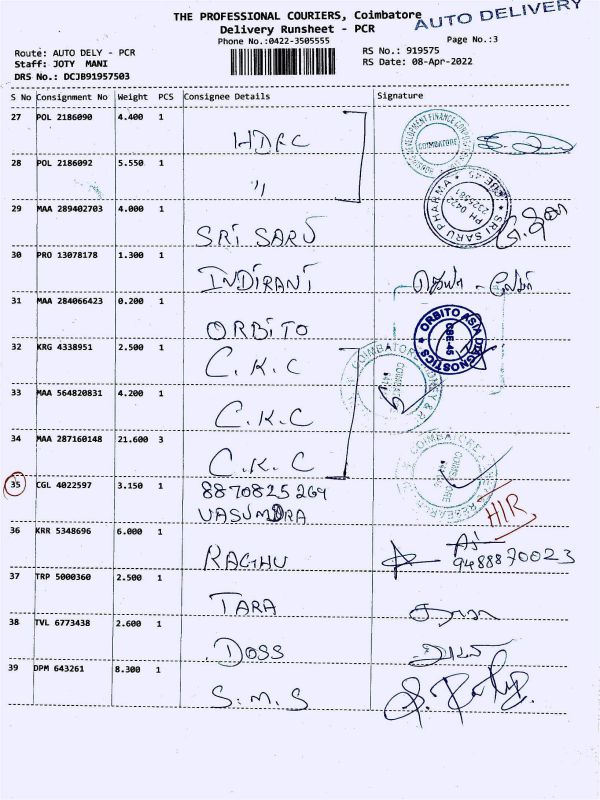 THE PROFESSIONAL COURIERS, Coimbatore
AUTO DELIVERY
Delivery Runsheet - PCR
Phone No.:0422-3505555
Page No.:3
Route: AUTO DELY - PCR
RS No.: 919575
Staff: JOTY MANI
RS Date: 08-Apr-2022
DRS No.: DCJB91957503
S No Consignment No Weight PCS Consignee Details Signature
27 POL 2186090 4.400 1 HDFC
HOUSING DEVELOPMENT FINANCE CORPORATION
COIMBATORE
28 POL 2186092 5.550 1 "
29 MAA 289402703 4.000 1 SRI SARU
SRI SARU PHARMA
PH 0422
CBE-45
30 PRO 13078178 1.300 1 INDIRANI
31 MAA 284066423 0.200 1 ORBITO
ORBITO ASIA DIAGNOSTICS
CBE-45
32 KRG 4338951 2.500 1 C.K.C
COIMBATORE
33 MAA 564820831 4.200 1 C.K.C
34 MAA 287160148 21.600 3 C.K.C
COIMBATORE
35 CGL 4022597 3.150 1 8870825269
VASUMDRA
HIR
36 KRR 5348696 6.000 1 RAGHU
9488870023
37 TRP 5000360 2.500 1 TARA
38 TVL 6773438 2.600 1 DOSS
39 DPM 643261 8.300 1 S.M.S